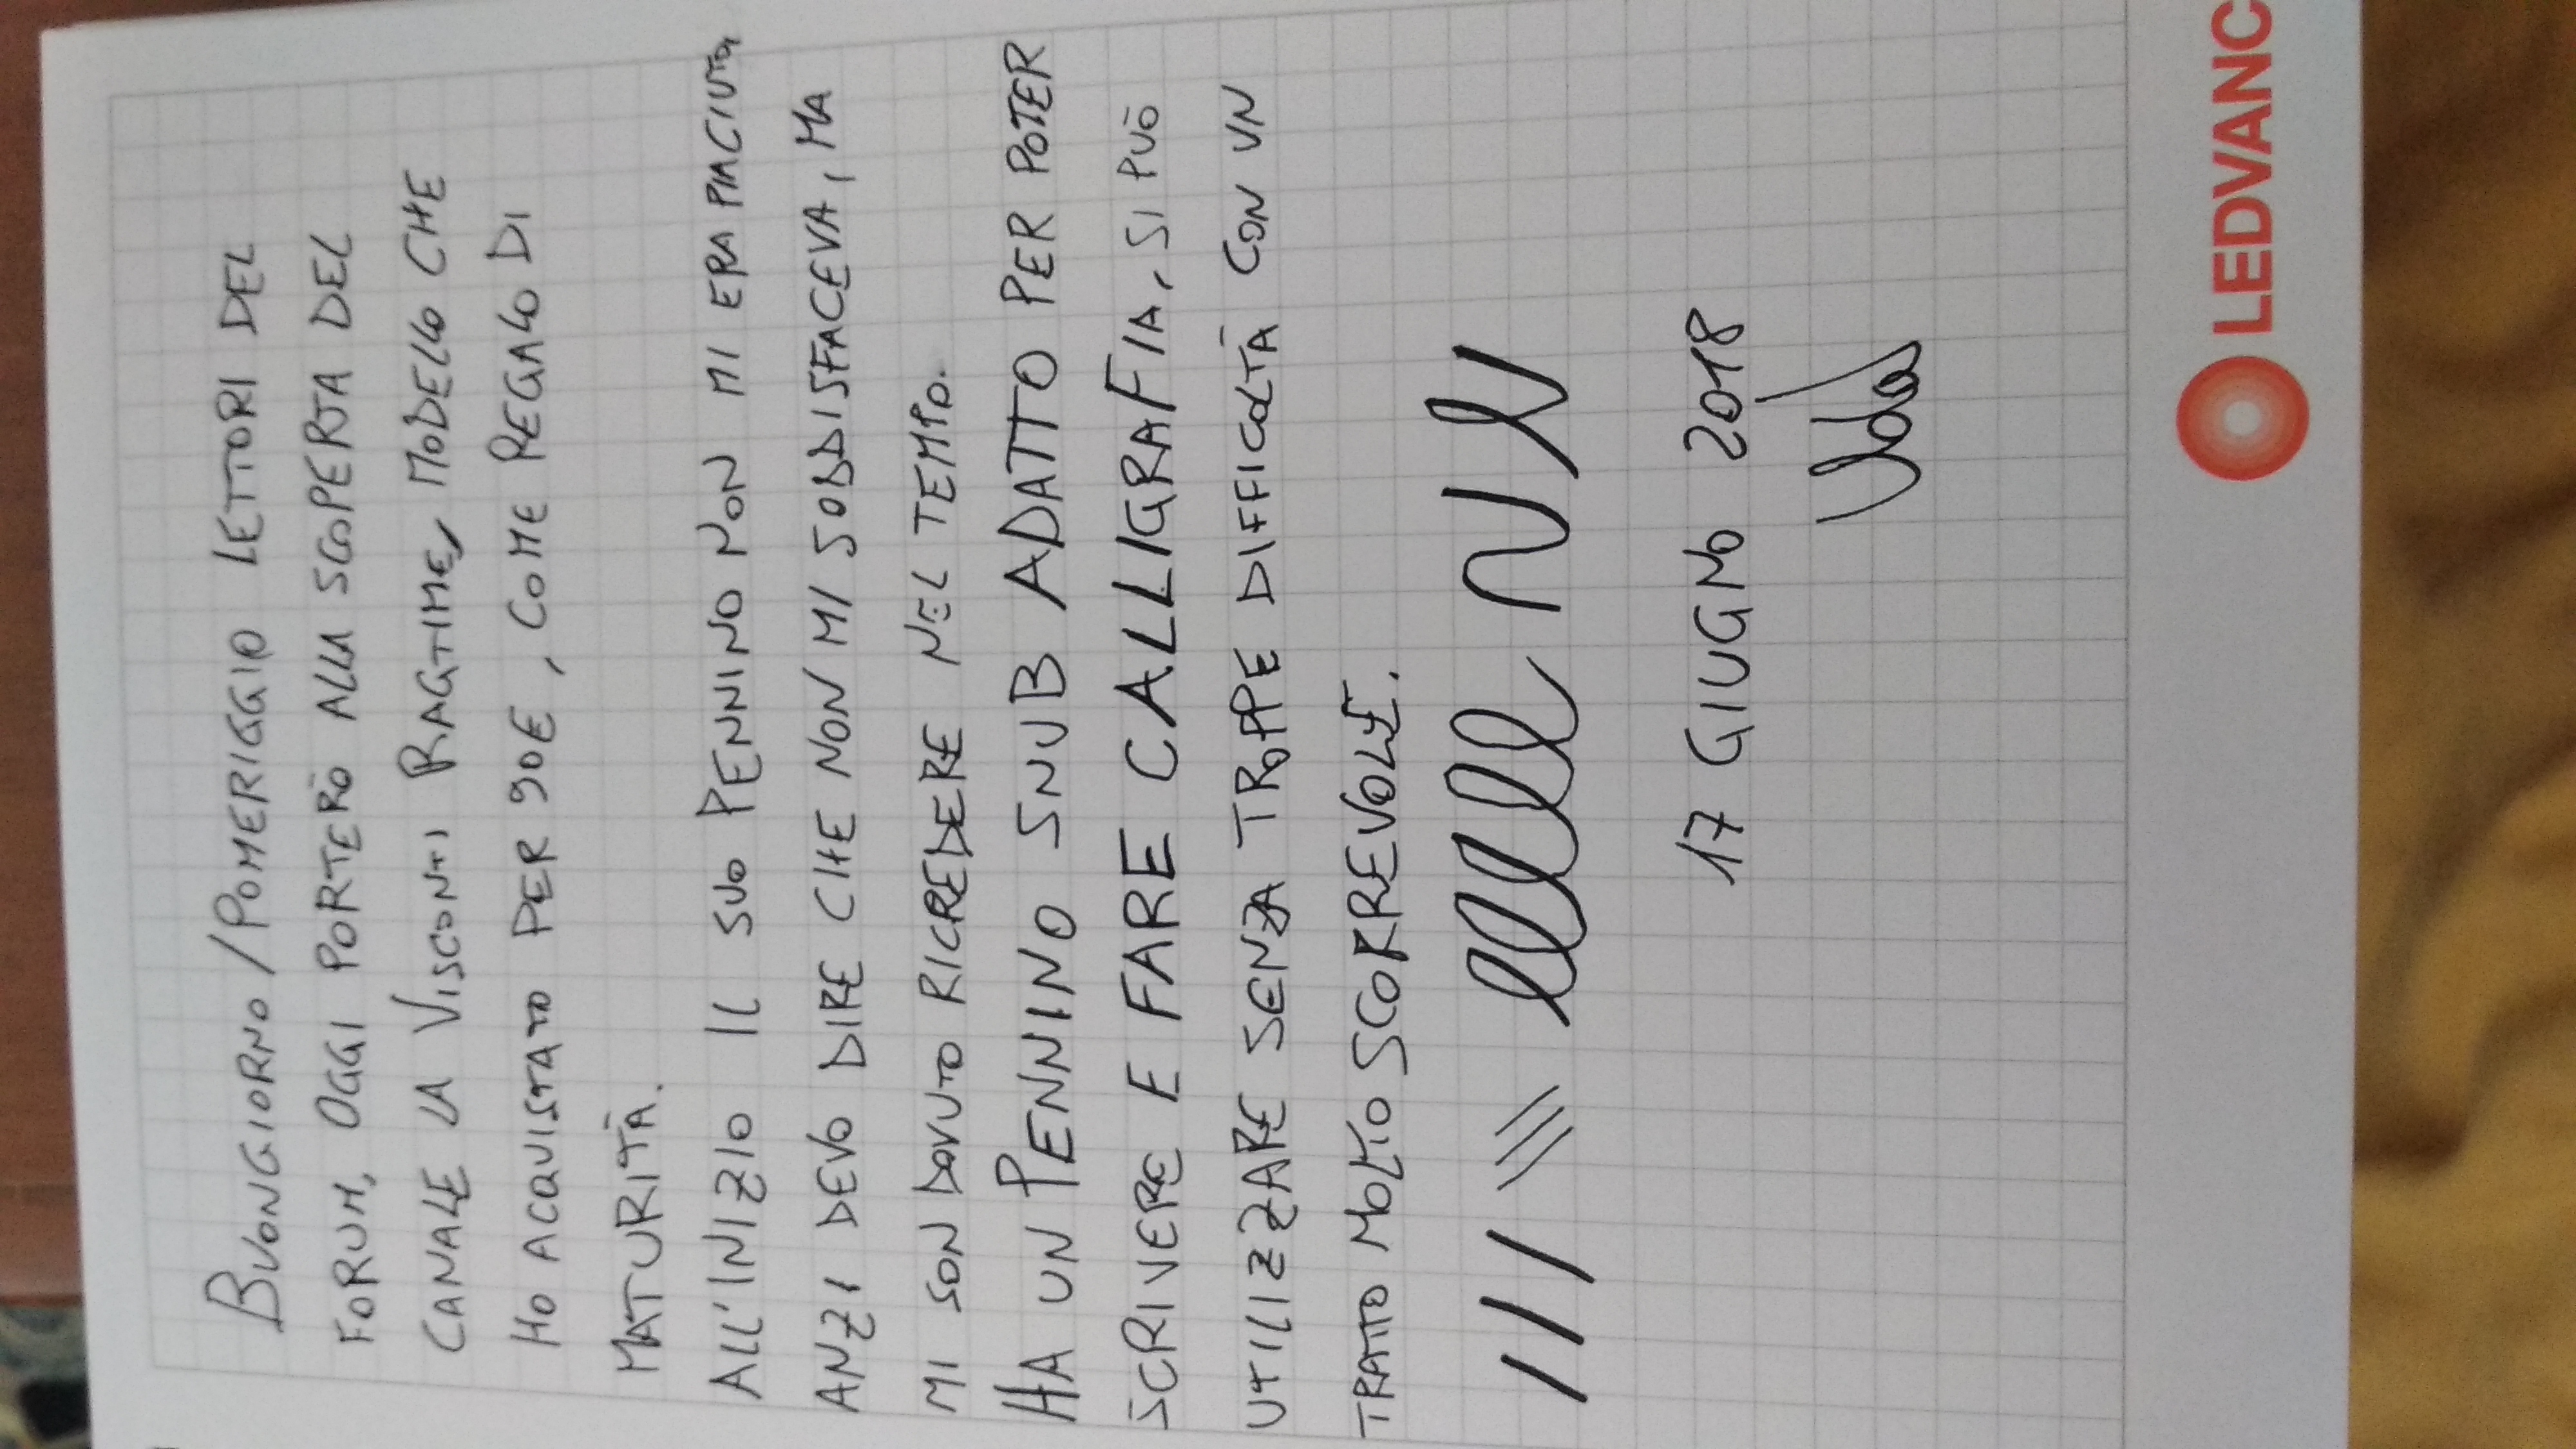 BUONGIORNO/POMERIGGIO LETTORI DEL
FORUM, OGGI PORTERÒ ALLA SCOPERTA DEL
CANALE LA VISCONTI RAGTIME, MODELLO CHE
HO ACQUISTATO PER 90E, COME REGALO DI
MATURITÀ.
ALL'INIZIO IL SUO PENNINO NON MI ERA PIACIUTO,
ANZI DEVO DIRE CHE NON MI SODDISFACEVA, MA
MI SON DOVUTO RICREDERE NEL TEMPO.
HA UN PENNINO SNUB ADATTO PER POTER
SCRIVERE E FARE CALLIGRAFIA, SI PUÒ
UTILIZZARE SENZA TROPPE DIFFICOLTÀ CON UN
TRATTO MOLTO SCORREVOLE.
17 GIUGNO 2018
LEDVANC